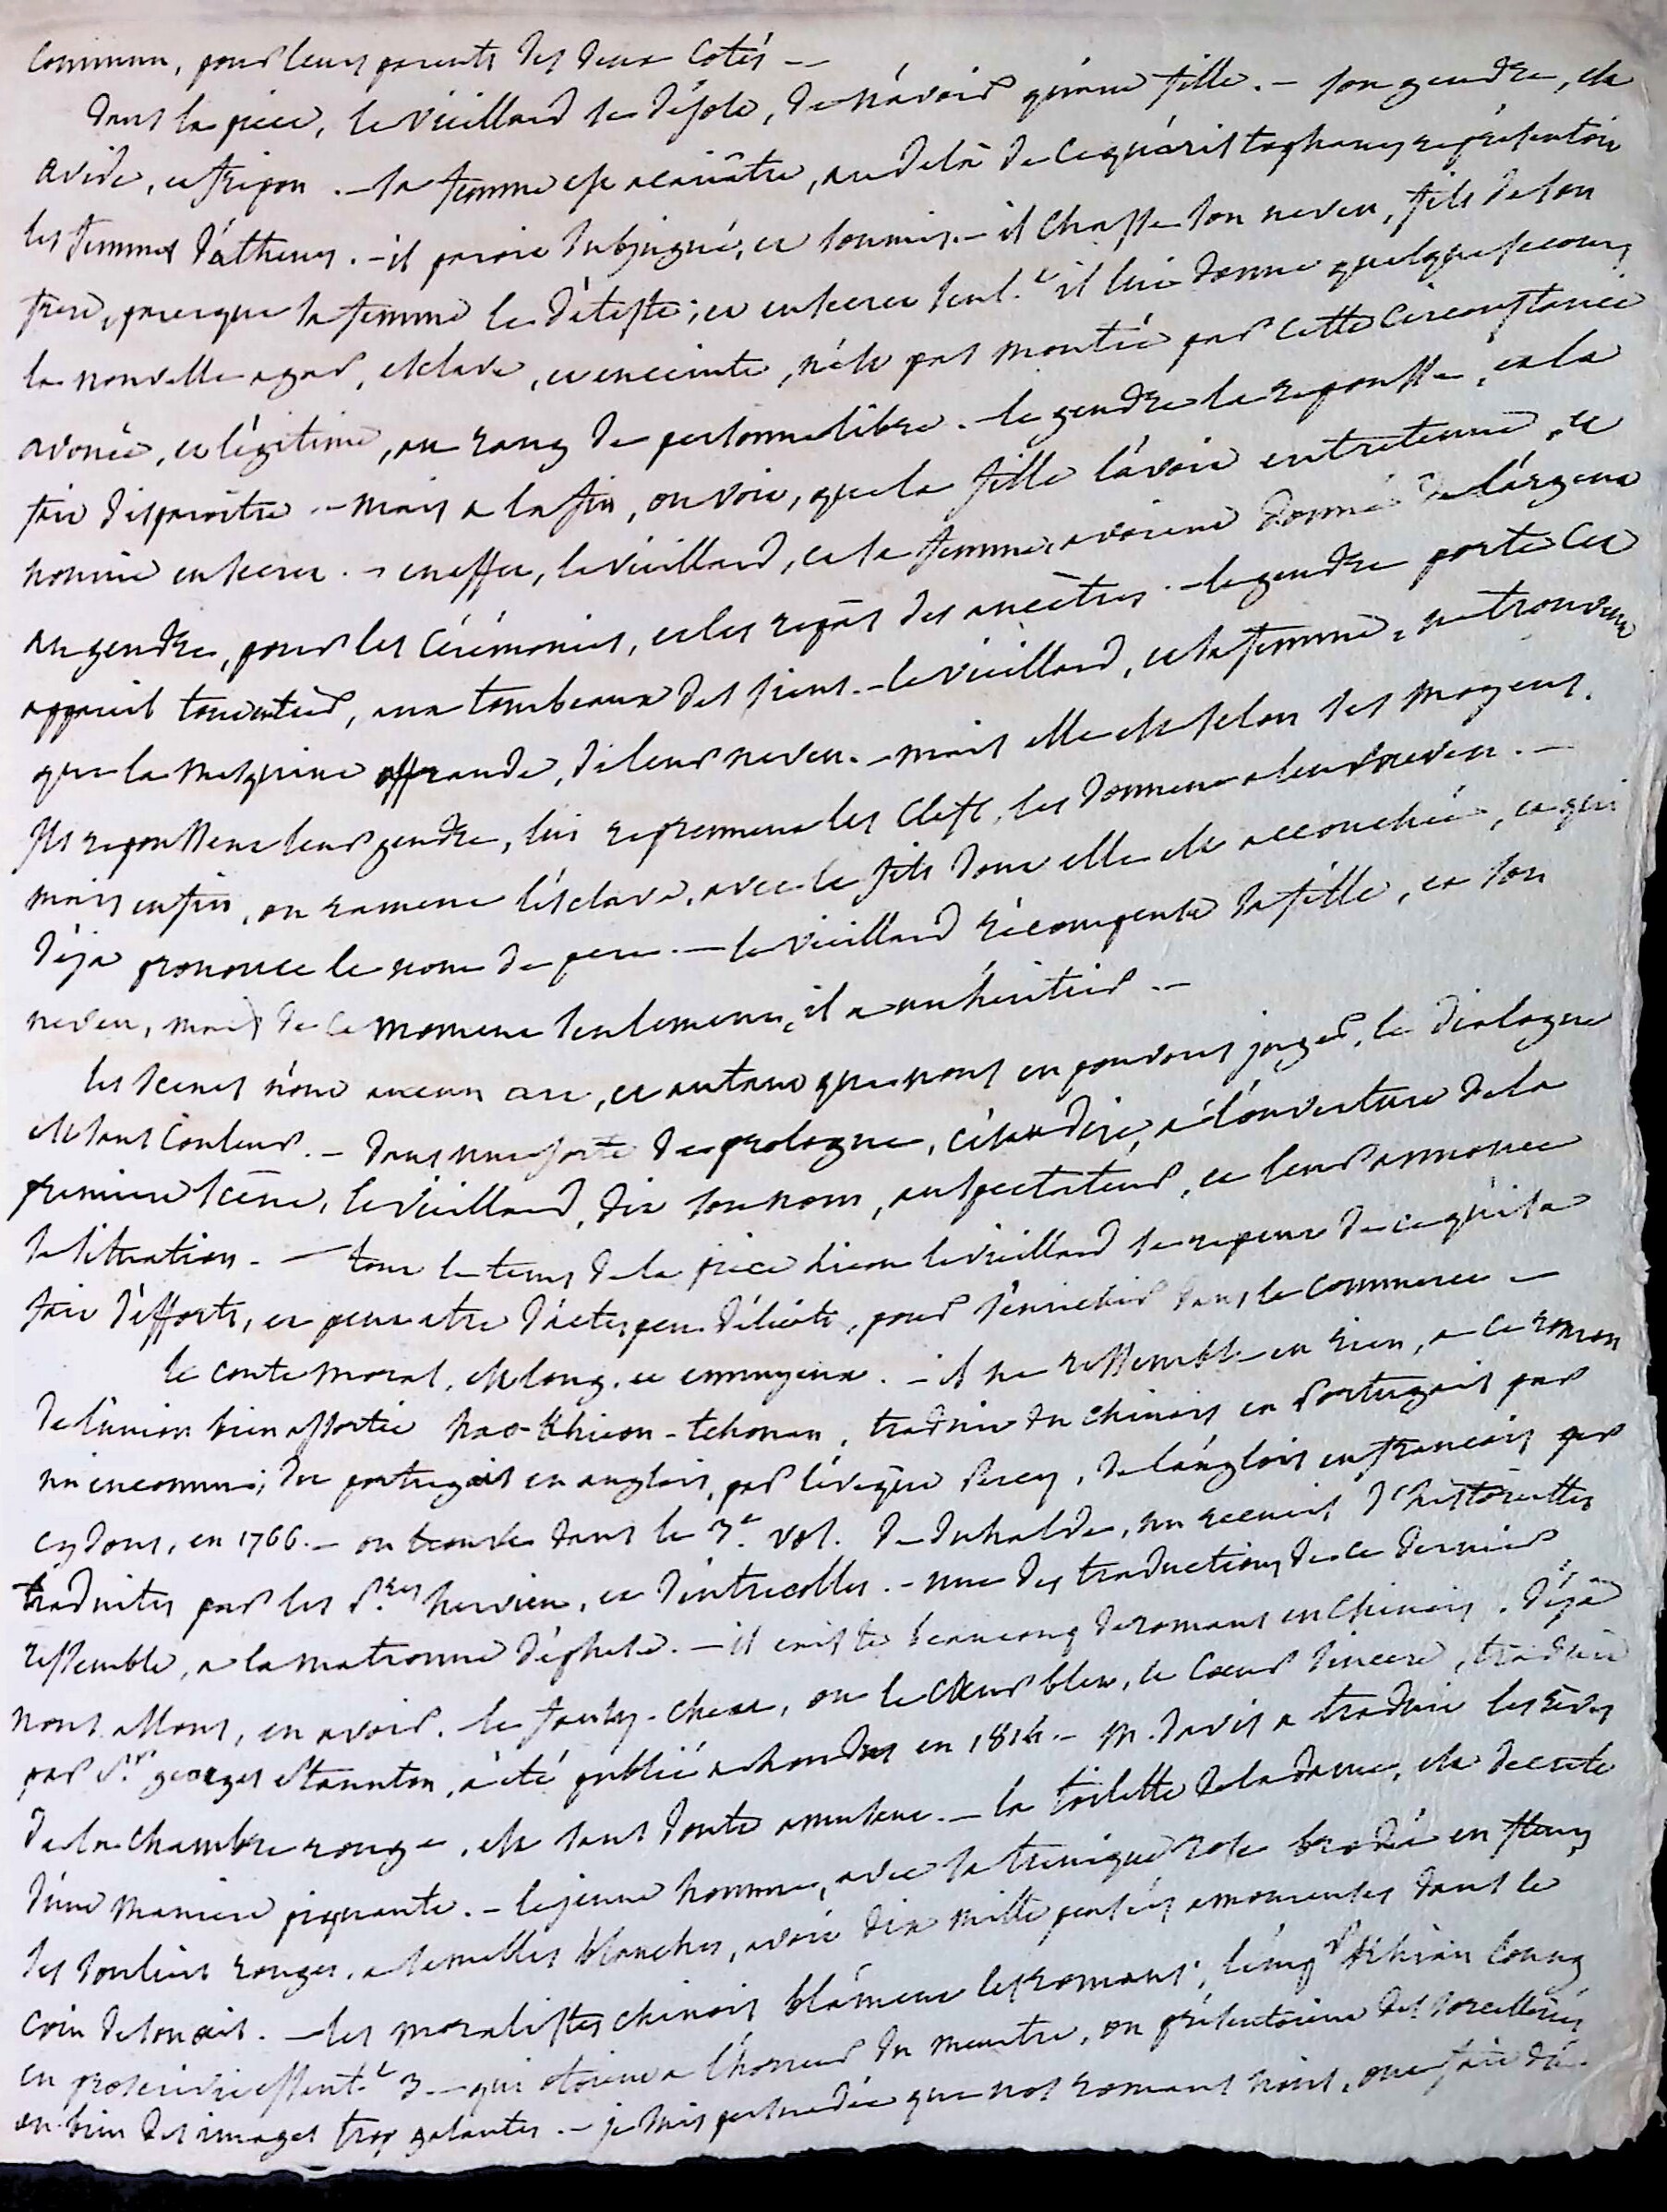 commun, pour leurs parents des deux cotés --
dans la piece, le vieillard se désole, de n'avoir qu'une fille. - son gendre, est
avide, et fripon. - sa femme est acariâtre, au delà de ce qu'aristophanes représentoit
les femmes d'athenes. - il paroit subjugué, et soumis. - il chasse son neveu, fils de son
frere, parce que sa femme le déteste; et en secret seul.t il lui donne quelques secours
la nouvelle agar, esclave, et enceinte, n'est pas montée par cette circonstance
avouée, et légitime, au rang de personne libre. - le gendre la repousse, et la
fait disparoitre. - mais a la fin, on voit, que la fille l'avoit entretenue, et
nourrie en secret. - en effet, le vieillard, et sa femme, avoient donné de l'argent
au gendre, pour les cérémonies, et les repas des ancêtres. - le gendre porte cet
appareil tout entier, aux tombeaux des siens. - le vieillard, et sa femme, ne trouvent
que la mesquine offrande, de leur neveu. - mais elle est selon ses moyens.
Ils repoussent leur gendre, lui reprennent les clefs, les donnent a leur neveu. -
mais enfin, on ramene l'esclave, avec le fils dont elle est accouchée, et qui
déja prononce le nom de pere. - le vieillard récompense sa fille, et son
neveu, mais de ce moment seulement, il a un héritier. -
les scenes n'ont aucun art, et autant que nous en pouvons juger, le dialogue
est sans couleur. - dans une sorte de prologue, c'est a dire, a l'ouverture de la
premiere scene, le vieillard, dit son nom, au spectateur, et leur annonce
sa situation. - tout le tems de la piece le vieillard se repent de ce qu'il a
fait d'efforts, et peut etre d'actes peu délicats, pour s'enrichir dans le commerce -
le conte moral, est long, et ennuyeux. - il ne ressemble en rien, a ce roman
de l'union bien assortie hao-khieou-tchouan, traduit du chinois en Portugais par
un inconnu; du portugais en anglois, par l'évêque Percy, de l'anglois en françois par
eydous, en 1766. - on trouve dans le 3.e vol. de duhalde, un recueil d'historiettes
traduites par les P.res hervieu, et d'entrecolles. - une des traductions de ce dernier
ressemble, a la matronne d'éphese. - il existe beaucoup de romans en chinois. déja
nous allons, en avoir. le ..., ou le ... bleu, le coeur sincere, traduit
par S.r georges staunton, a été publié a Londres en 1814. - M. davis a traduit les rêves
de la chambre rouge, est sans doute amusant. - la toilette de la dame, est decrite
d'une maniere piquante. - le jeune homme, avec sa tunique rose brodée en fleurs
ses souliers rouges, a semelles blanches, avoit dix mille pensées amoureuses dans le
coin de son oeil. - les moralistes chinois blâment les romans; l'emp.r khian loung
en proscrivit essent.t 3 - qui otoient a l'horreur du meurtre, on présentoient des sorcelleries
ou bien des images trop galantes. - je suis persuadée que nos romans noirs, ont fait du